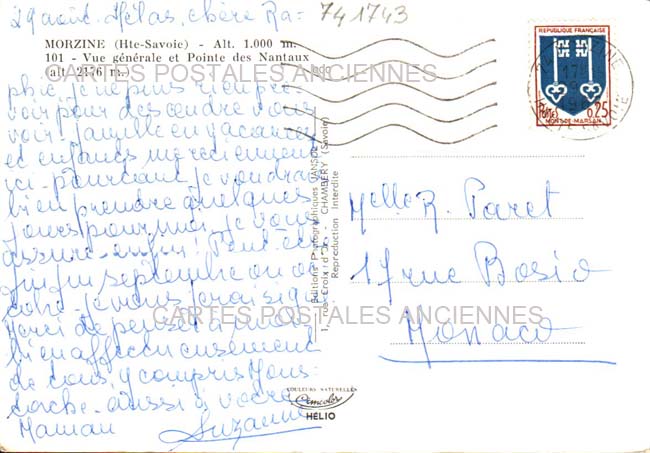 29 août. Hélas, chère Ra-
741743
MORZINE (Hte-Savoie) - Alt. 1.000 m.
101 - Vue générale et Pointe des Nantaux
(alt. 2176 m.)
phie je ne puis rien pré
voir pour descendre vous
voir. famille en vacances
et enfants me reviennent
ici. pourtant je voudrais
bien prendre quelques
jours pour moi, je vous
assure. enfin! Peut-être
fin septembre ou oc
tobre je
Merci de penser à moi
bien affectueusement
de tous, y compris Mous
tache. aussi à votre
Maman Suzanne
Editions Photographiques
1, rue Croix d'Or - CHAMBÉRY (Savoie)
Reproduction Interdite
COULEURS NATURELLES
Cimcolor
HELIO
REPUBLIQUE FRANÇAISE
POSTES 0,25
MONT-DE-MARSAN
17H
Melle R. Paret
17 rue Bosio
Monaco
CARTES POSTALES ANCIENNES
CARTES POSTALES ANCIENNES